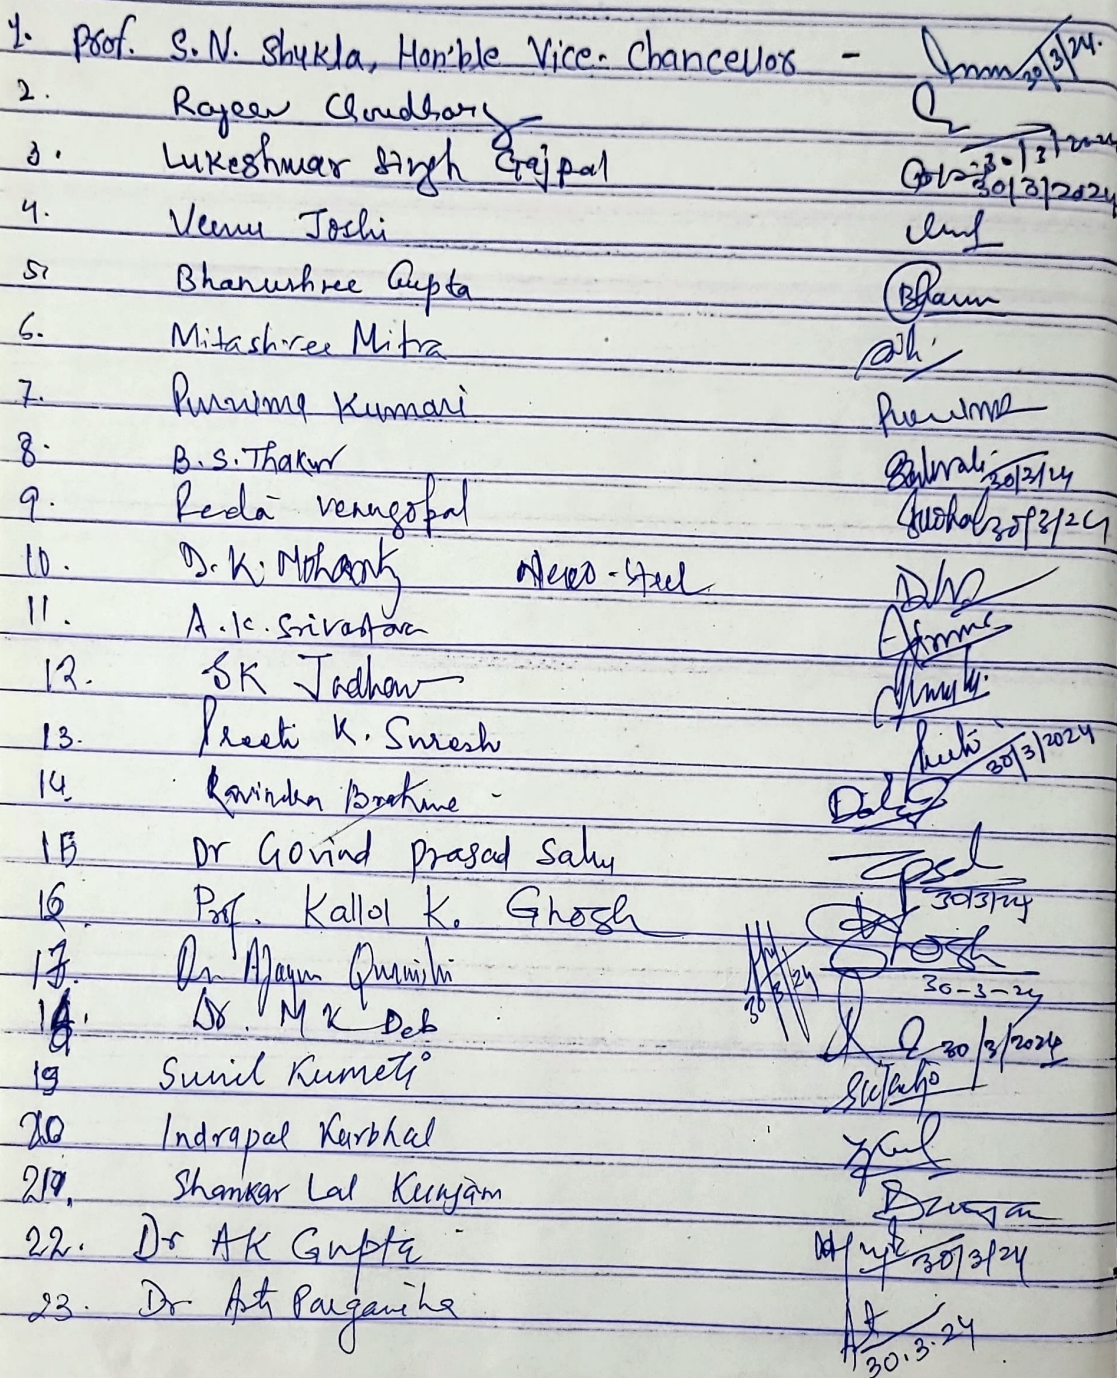 1. Prof. S.N. Shukla, Hon'ble Vice-Chancellor - 30/3/24.
2. Rajeev Choudhary 30/3/2024
3. Lukeshwar Singh Gajpal 30/3/2024
4. Veenu Joshi
5. Bhanushree Gupta Bhanu
6. Mitashree Mitra
7. Purnima Kumari Purnima
8. B.S. Thakur 30/3/24
9. Reda venugopal 30/3/24
10. D.K. Mohanty Steel
11. A.K. Srivastava
12. SK Jadhav
13. Preeti K. Suresh Preeti 30/3/2024
14. Ravindra Brahme -
15 Dr Govind Prasad Sahu 30/3/24
16. Prof. Kallol K. Ghosh Ghosh 30-3-24
17. Dr Quraishi 30/3/24
18. Dr. M K Deb 30/3/2024
19 Sunil Kumeti
20 Indrapal Karbhal
21. Shankar Lal Kunjam
22. Dr AK Gupta 30/3/24
23. Dr Arti Parganiha 30.3.24